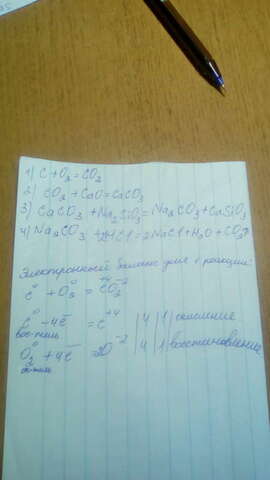 1) C + O₂ = CO₂
2) CO₂ + CaO = CaCO₃
3) CaCO₃ + Na₂SiO₃ = Na₂CO₃ + CaSiO₃
4) Na₂CO₃ + 2HCl = 2NaCl + H₂O + CO₂↑
Электронный баланс для 1 реакции:
C⁰ + O₂⁰ = C⁺⁴O₂⁻²
C⁰ - 4e̅ = C⁺⁴ | 4 | 1 | окисление
вос-тель
O₂⁰ + 4e̅ = 2O⁻² | 4 | 1 | восстановление
ок-тель